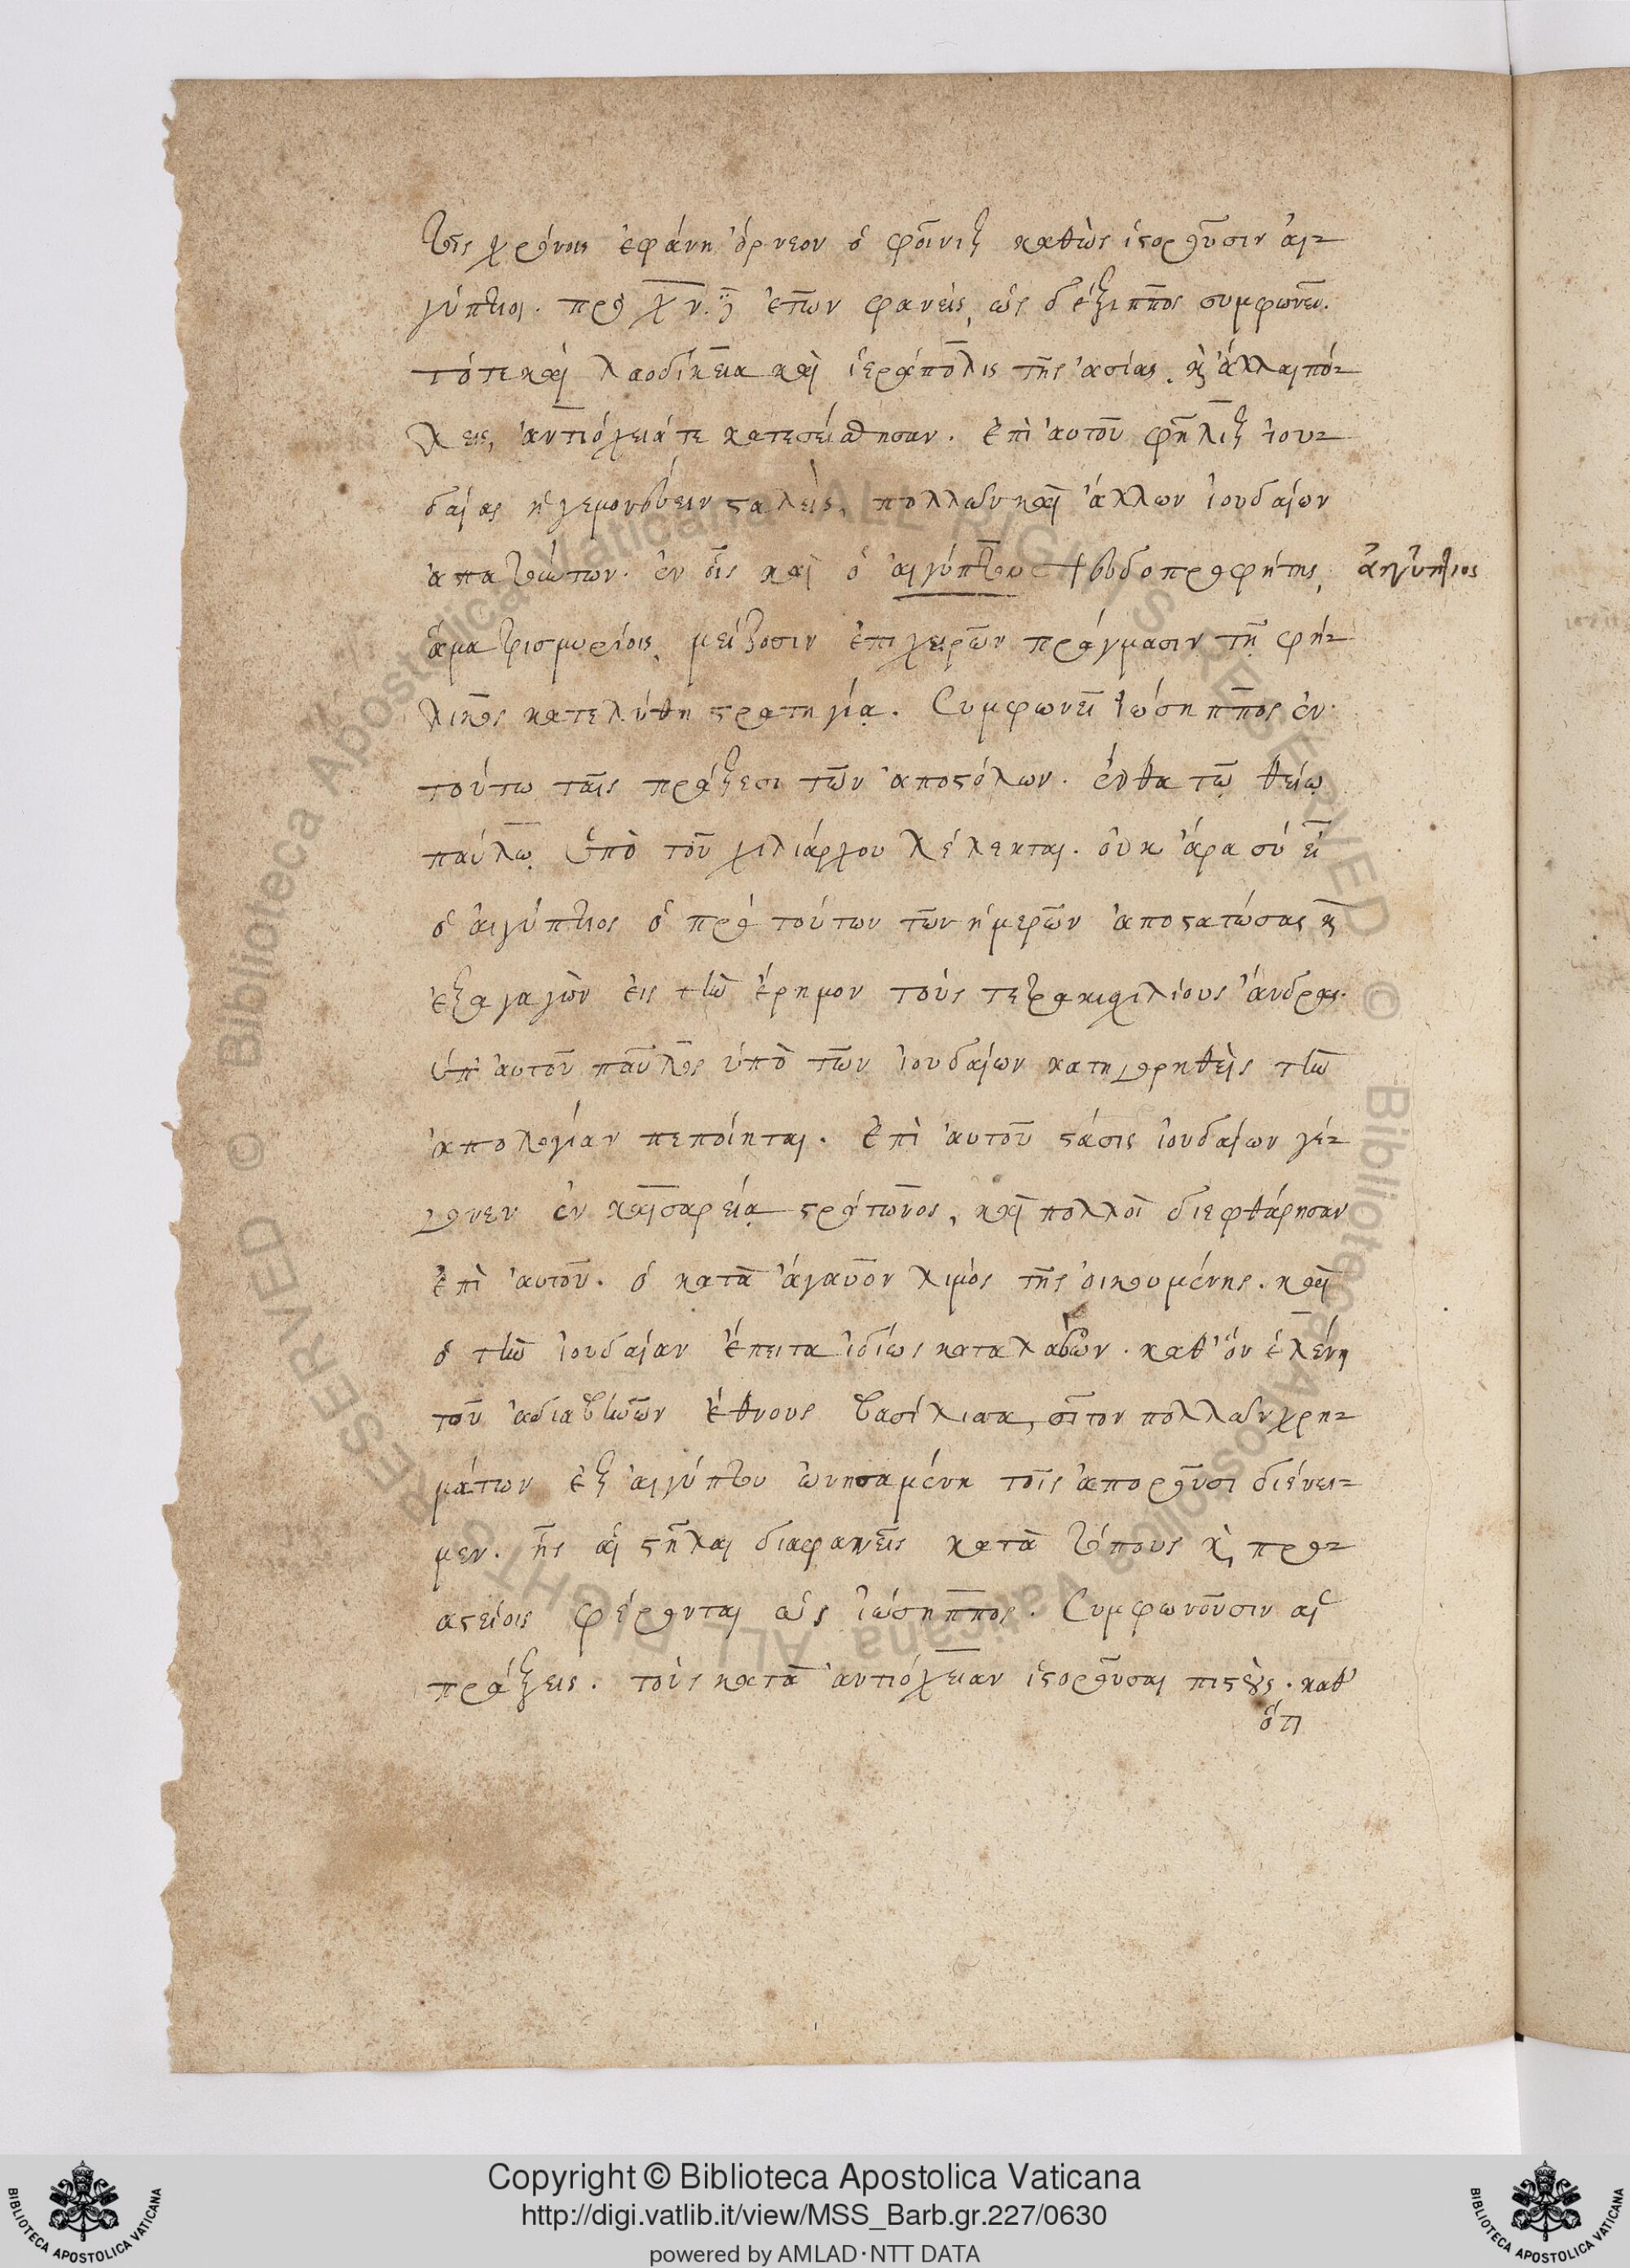 τοῖς χρόνοις ἐφάνη ὄρνεον ὁ φοῖνιξ καθὼς ἱστοροῦσιν ἀι-
γύπτιοι. πρὸ χν. ἐτῶν φανεὶς, ὡς δέξιππος συμφωνεῖ.
τότε καὶ λαοδίκεια καὶ ἱεράπολις τῆς ἀσίας. κ̀ ἄλλαι πό-
λεις, ἀντιόχειά τε κατεσείσθησαν. Ἐπὶ ἀυτοῦ φῆλιξ ἰου-
δαίας ἡγεμονεύειν σταλεὶς, πολλῶν καὶ ἄλλων ἰουδαίων
ἀπατώντων. ἐν οἷς καὶ ὁ ἀιγύπτου ψευδοπροφήτης, ἀιγύπτιος
ἅμα τρισμυρίοις, μείζοσιν ἐπιχειρῶν πράγμασιν τῇ φή-
λικος κατελύθη στρατηγίᾳ. Συμφωνεῖ ἰώσηππος ἐν
τούτω ταῖς πράξεσι τῶν ἀποστόλων. ἔνθα τῷ θείῳ
παύλῳ ὑπὸ τοῦ χιλιάρχου λέλεκται. οὐκ ἄρα σύ εἶ
ὁ ἀιγύπτιος ὁ πρὸ τούτων τῶν ἡμερῶν ἀποστατώσας κ̀
ἐξαγαγὼν εἰς τὴν ἔρημον τοὺς τετρακιχιλίους ἄνδρας.
ὑπ' ἀυτοῦ παῦλος ὑπὸ τῶν ἰουδαίων κατηγορηθεὶς τὴν
ἀπολογίαν πεποίηται. Ἐπὶ ἀυτοῦ στάσις ἰουδαίων γέ-
γονεν ἐν καισαρείᾳ στράτωνος, καὶ πολλοὶ διεφθάρησαν
Ἐπὶ ἀυτοῦ. ὁ κατὰ ἄγαυον λιμὸς τῆς ὀικουμένης. καὶ
ὁ τὴν ἰουδαίαν ἔπειτα ἰδίως καταλαβὼν. καθ' ὃν ἑλένη
τοῦ ἀδιαβηνῶν ἔθνους βασίλισσα, σῖτον πολλῶν χρη-
μάτων ἐξ ἀιγύπτου ὠνησαμένη τοῖς ἀποροῦσι διένει-
μεν. ἧς αἱ στῆλαι διαφανεῖς κατὰ τόπους κ̀, προ-
αστείοις φέρονται ὡς ἰώσηππος. Συμφωνοῦσιν αἱ
πράξεις. τοὺς κατὰ ἀντιόχειαν ἱστοροῦσαι πιστούς. καθ'
ὅτι
Copyright © Biblioteca Apostolica Vaticana
http://digi.vatlib.it/view/MSS_Barb.gr.227/0630
powered by AMLAD·NTT DATA